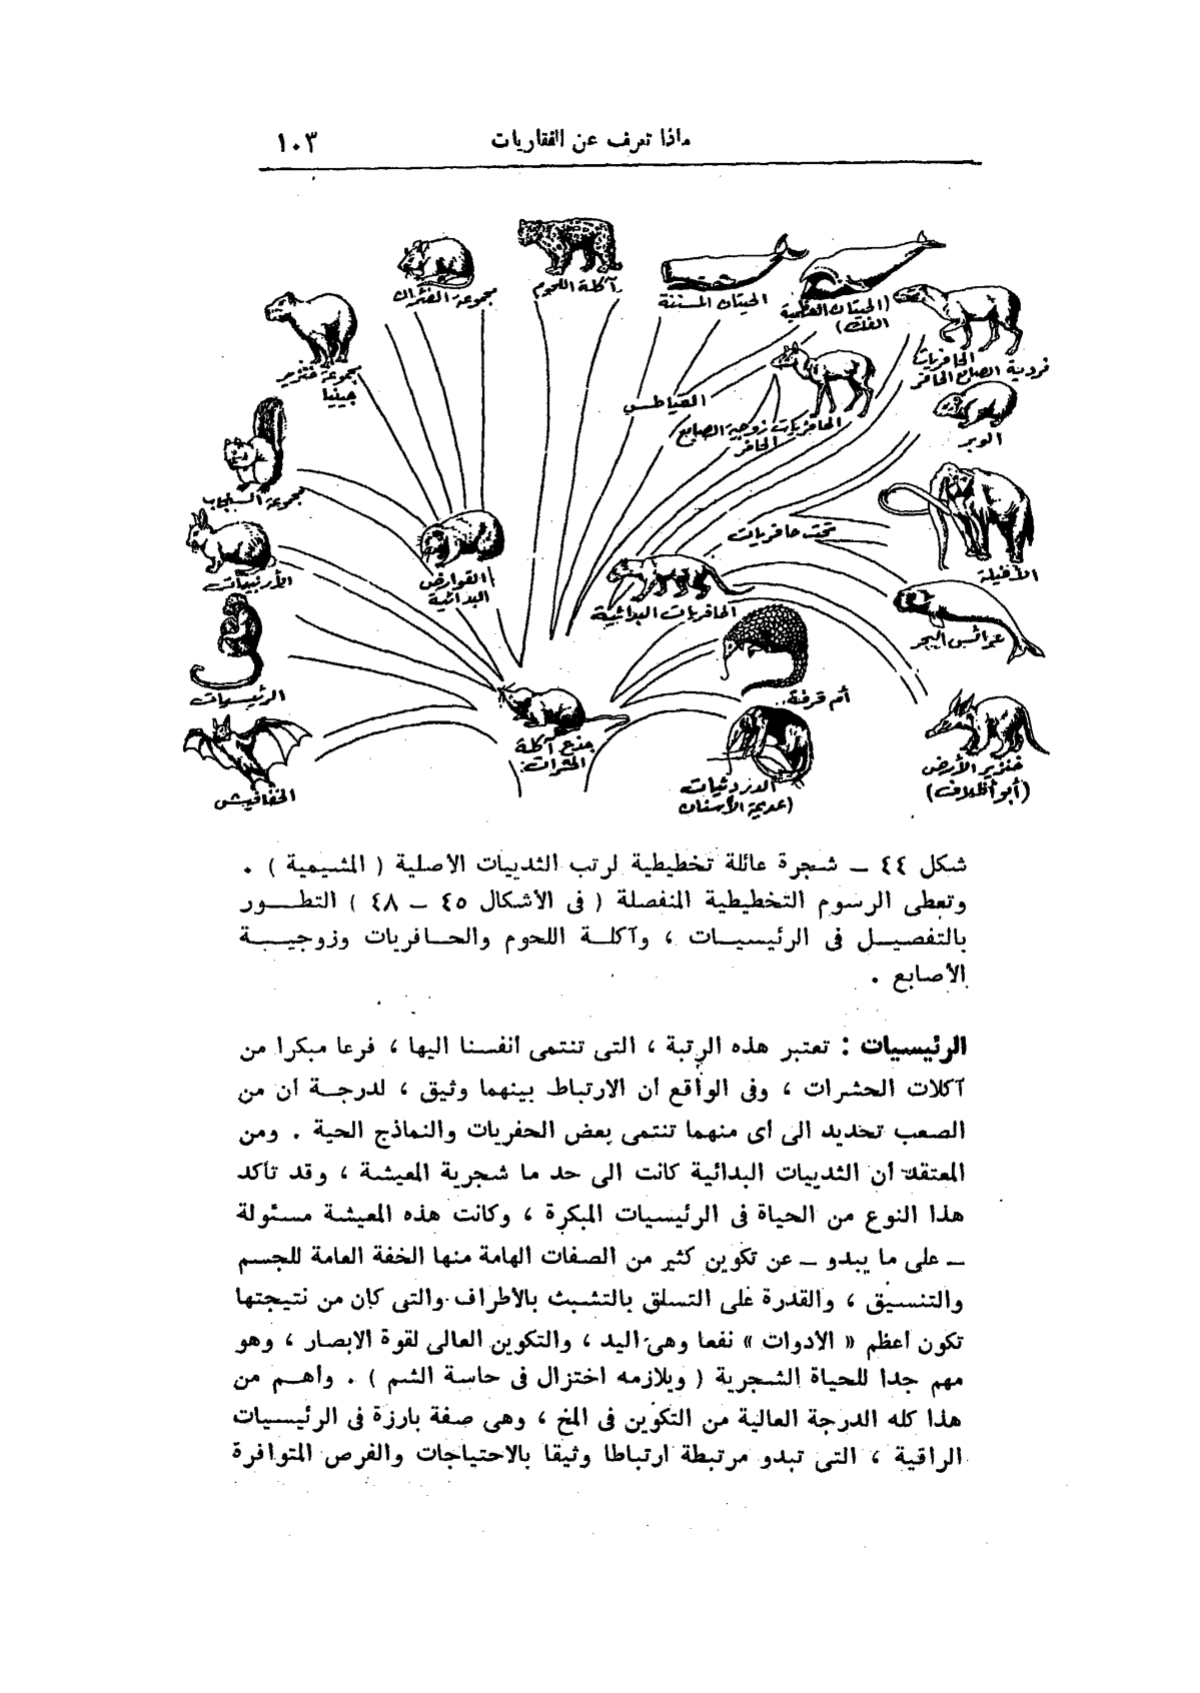 ماذا تعرف عن الفقاريات
١٠٣
مجموعة الفئران
آكلة اللحوم
الحيتان المسننة
(الحيتان العظمية
الفك)
مجموعة خنزير
جينيا
الحافريات
فردية الصابع الحافر
القياطس
الحافريات زوجية الصابع
الحافر
الوبر
مجموعة السنجاب
تحت حافريات
الأرنبيات
القوارض
البدائية
الأفيلة
الحافريات البدائية
عرائس البحر
الرئيسيات
أم قرفة
جذع آكلة
الحشرات
خنزير الأرض
(أبو أظلاف)
الخفافيش
الدردئيات
(عديمة الأسنان
شكل ٤٤ – شجرة عائلة تخطيطية لرتب الثدييات الأصلية ( المشيمية ) .
وتعطى الرسوم التخطيطية المنفصلة ( فى الأشكال ٤٥ – ٤٨ ) التطور
بالتفصيل فى الرئيسيات ، وآكلة اللحوم والحافريات وزوجية
الأصابع .
الرئيسيات : تعتبر هذه الرتبة ، التى تنتمى أنفسنا اليها ، فرعا مبكرا من
آكلات الحشرات ، وفى الواقع أن الارتباط بينهما وثيق ، لدرجة أن من
الصعب تحديد الى أى منهما تنتمى بعض الحفريات والنماذج الحية . ومن
المعتقد أن الثدييات البدائية كانت الى حد ما شجرية المعيشة ، وقد تأكد
هذا النوع من الحياة فى الرئيسيات المبكرة ، وكانت هذه المعيشة مسئولة
– على ما يبدو – عن تكوين كثير من الصفات الهامة منها الخفة العامة للجسم
والتنسيق ، والقدرة على التسلق بالتشبث بالأطراف والتى كان من نتيجتها
تكون أعظم « الأدوات » نفعا وهى اليد ، والتكوين العالى لقوة الابصار ، وهو
مهم جدا للحياة الشجرية ( ويلازمه اختزال فى حاسة الشم ) . وأهم من
هذا كله الدرجة العالية من التكوين فى المخ ، وهى صفة بارزة فى الرئيسيات
الراقية ، التى تبدو مرتبطة ارتباطا وثيقا بالاحتياجات والفرص المتوافرة